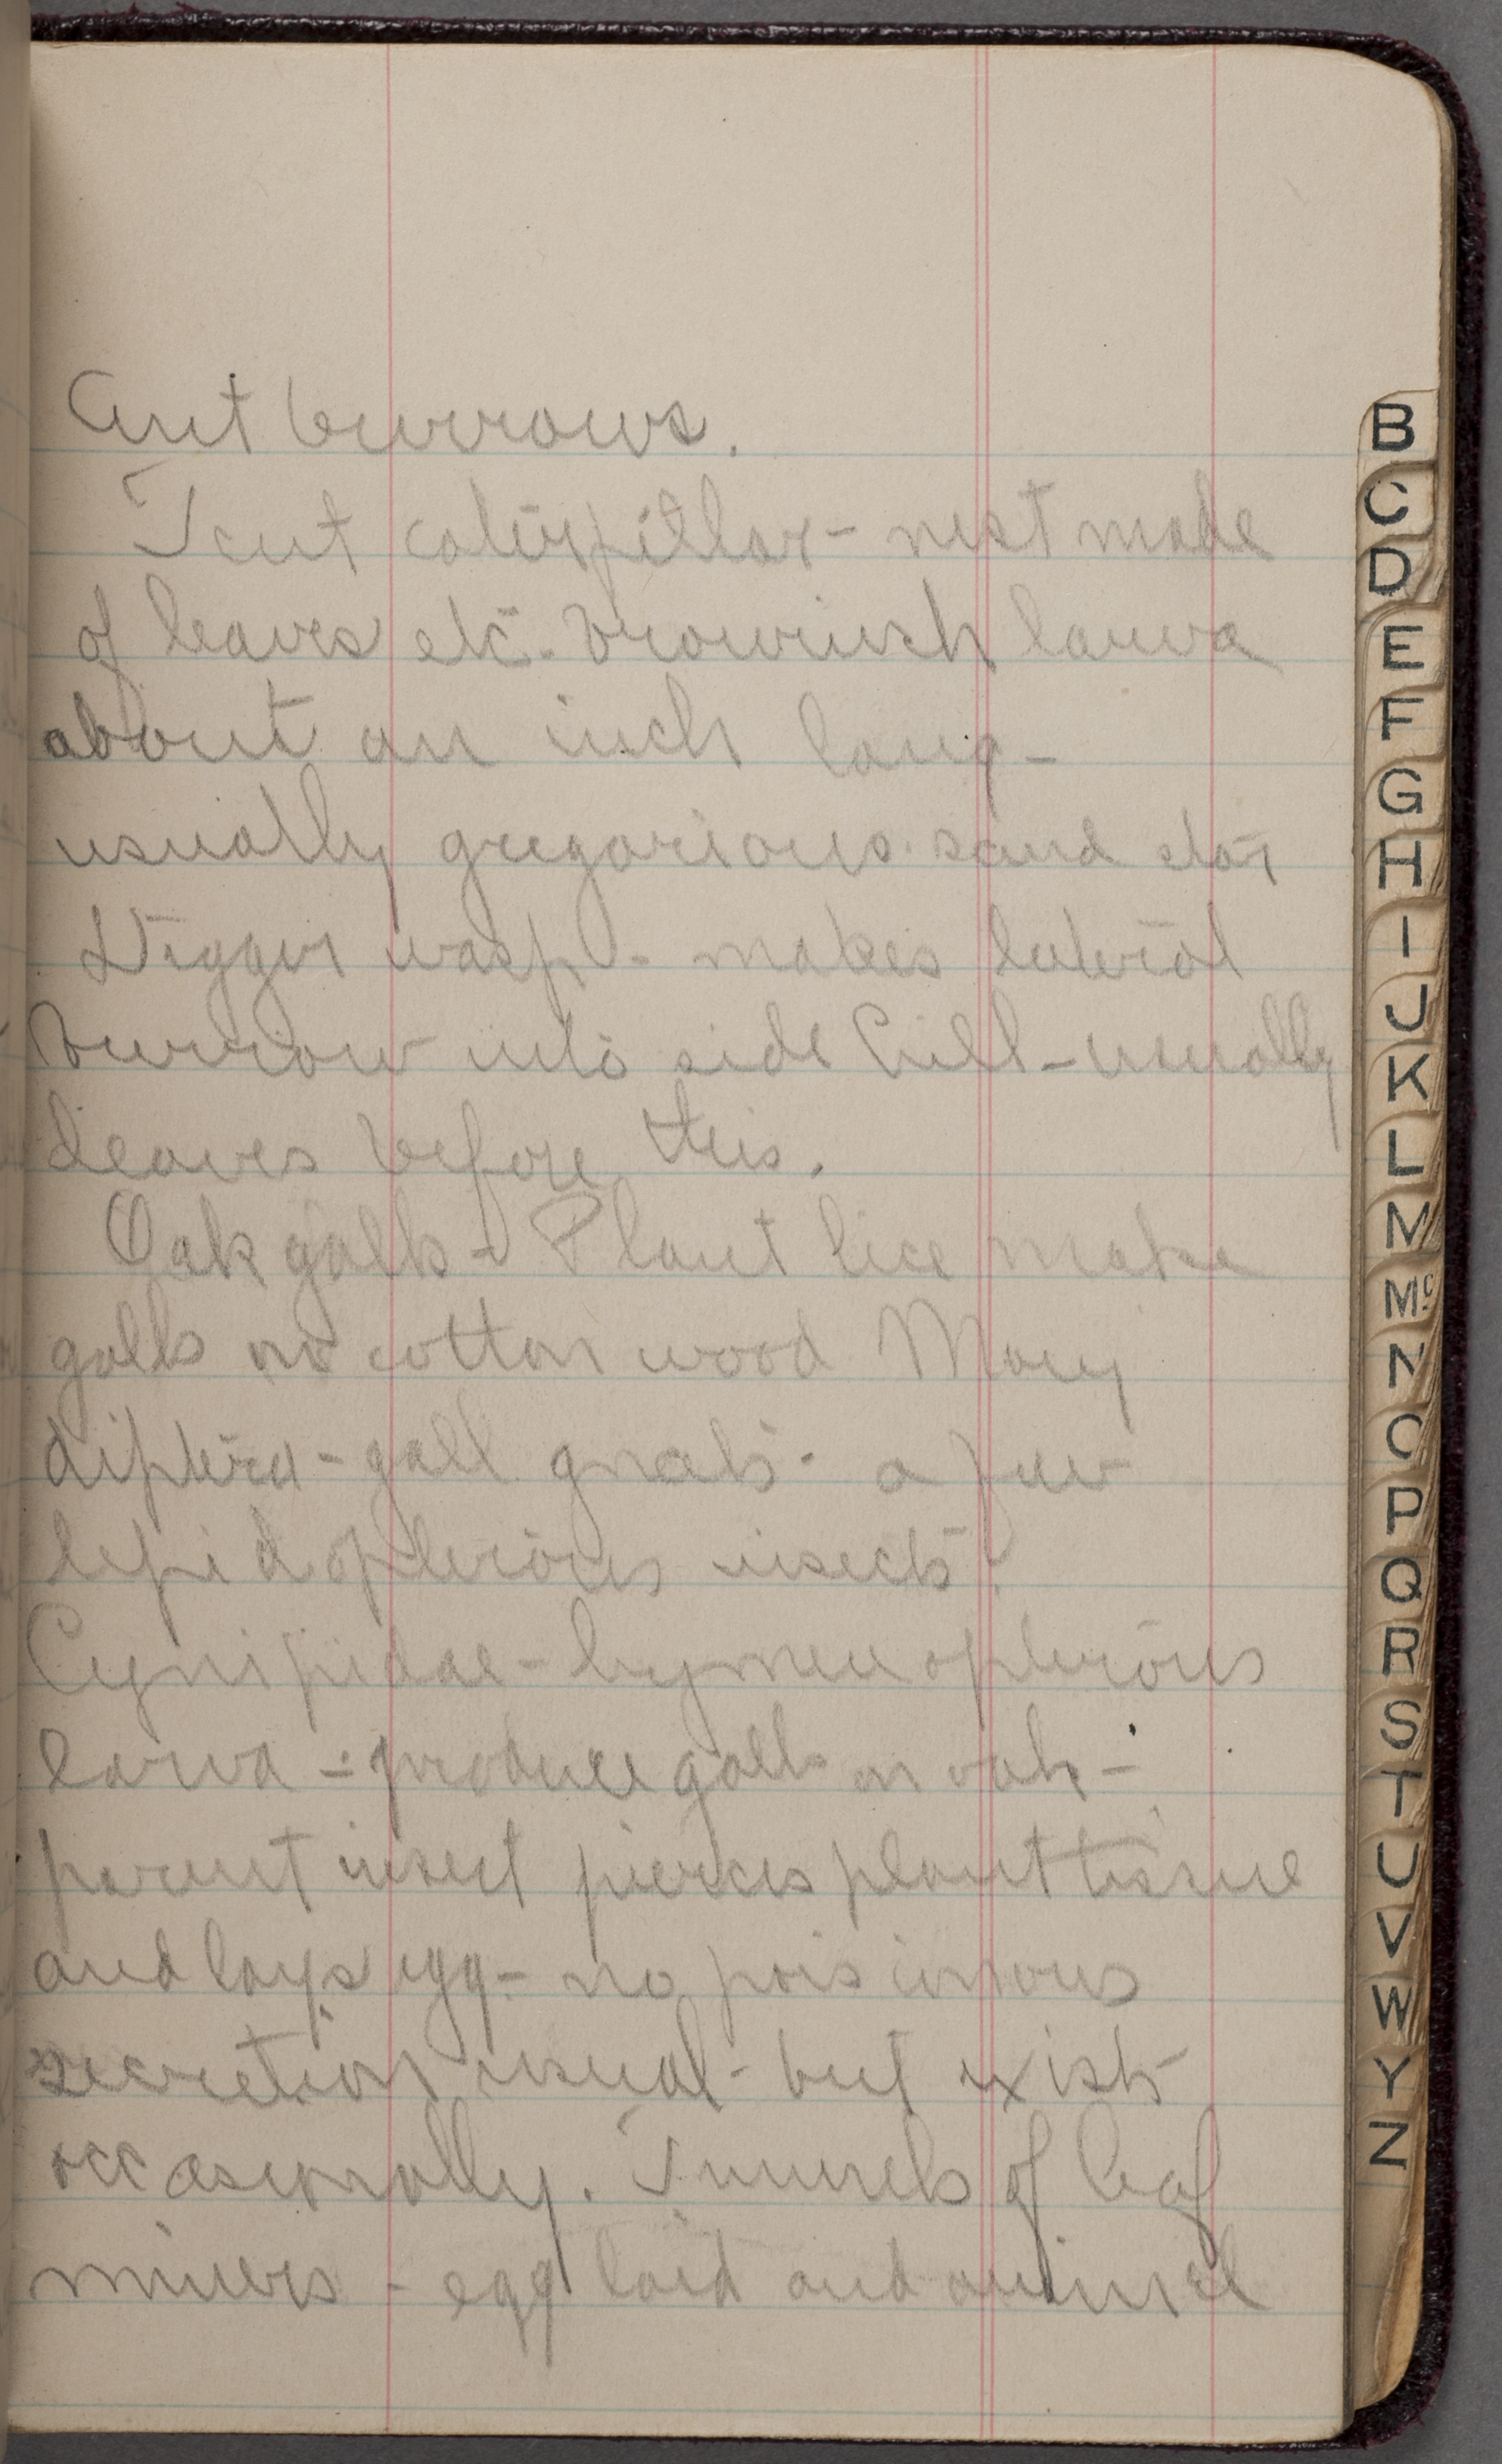 Ant burrows.
Tent caterpillar - nest made
of leaves etc. brownish larva
about an inch long -
usually gregarious.
Digger wasp - makes lateral
burrow into side hill - usually
leaves before this.
Oak galls - Plant lice make
galls on cotton wood Many
diptera - gall gnats - a few
lepidopterous insects.
Cynipidae - hymenopterous
larva - produce galls on oak -
parent insect pierces plant tissue
and lays egg - no poisinous
secretion usual - but exists
occasionally. Tunnels of leaf
miners - egg laid and animal
B
C
D
E
F
G
H
I
J
K
L
M
Mc
N
O
P
Q
R
S
T
U
V
W
Y
Z